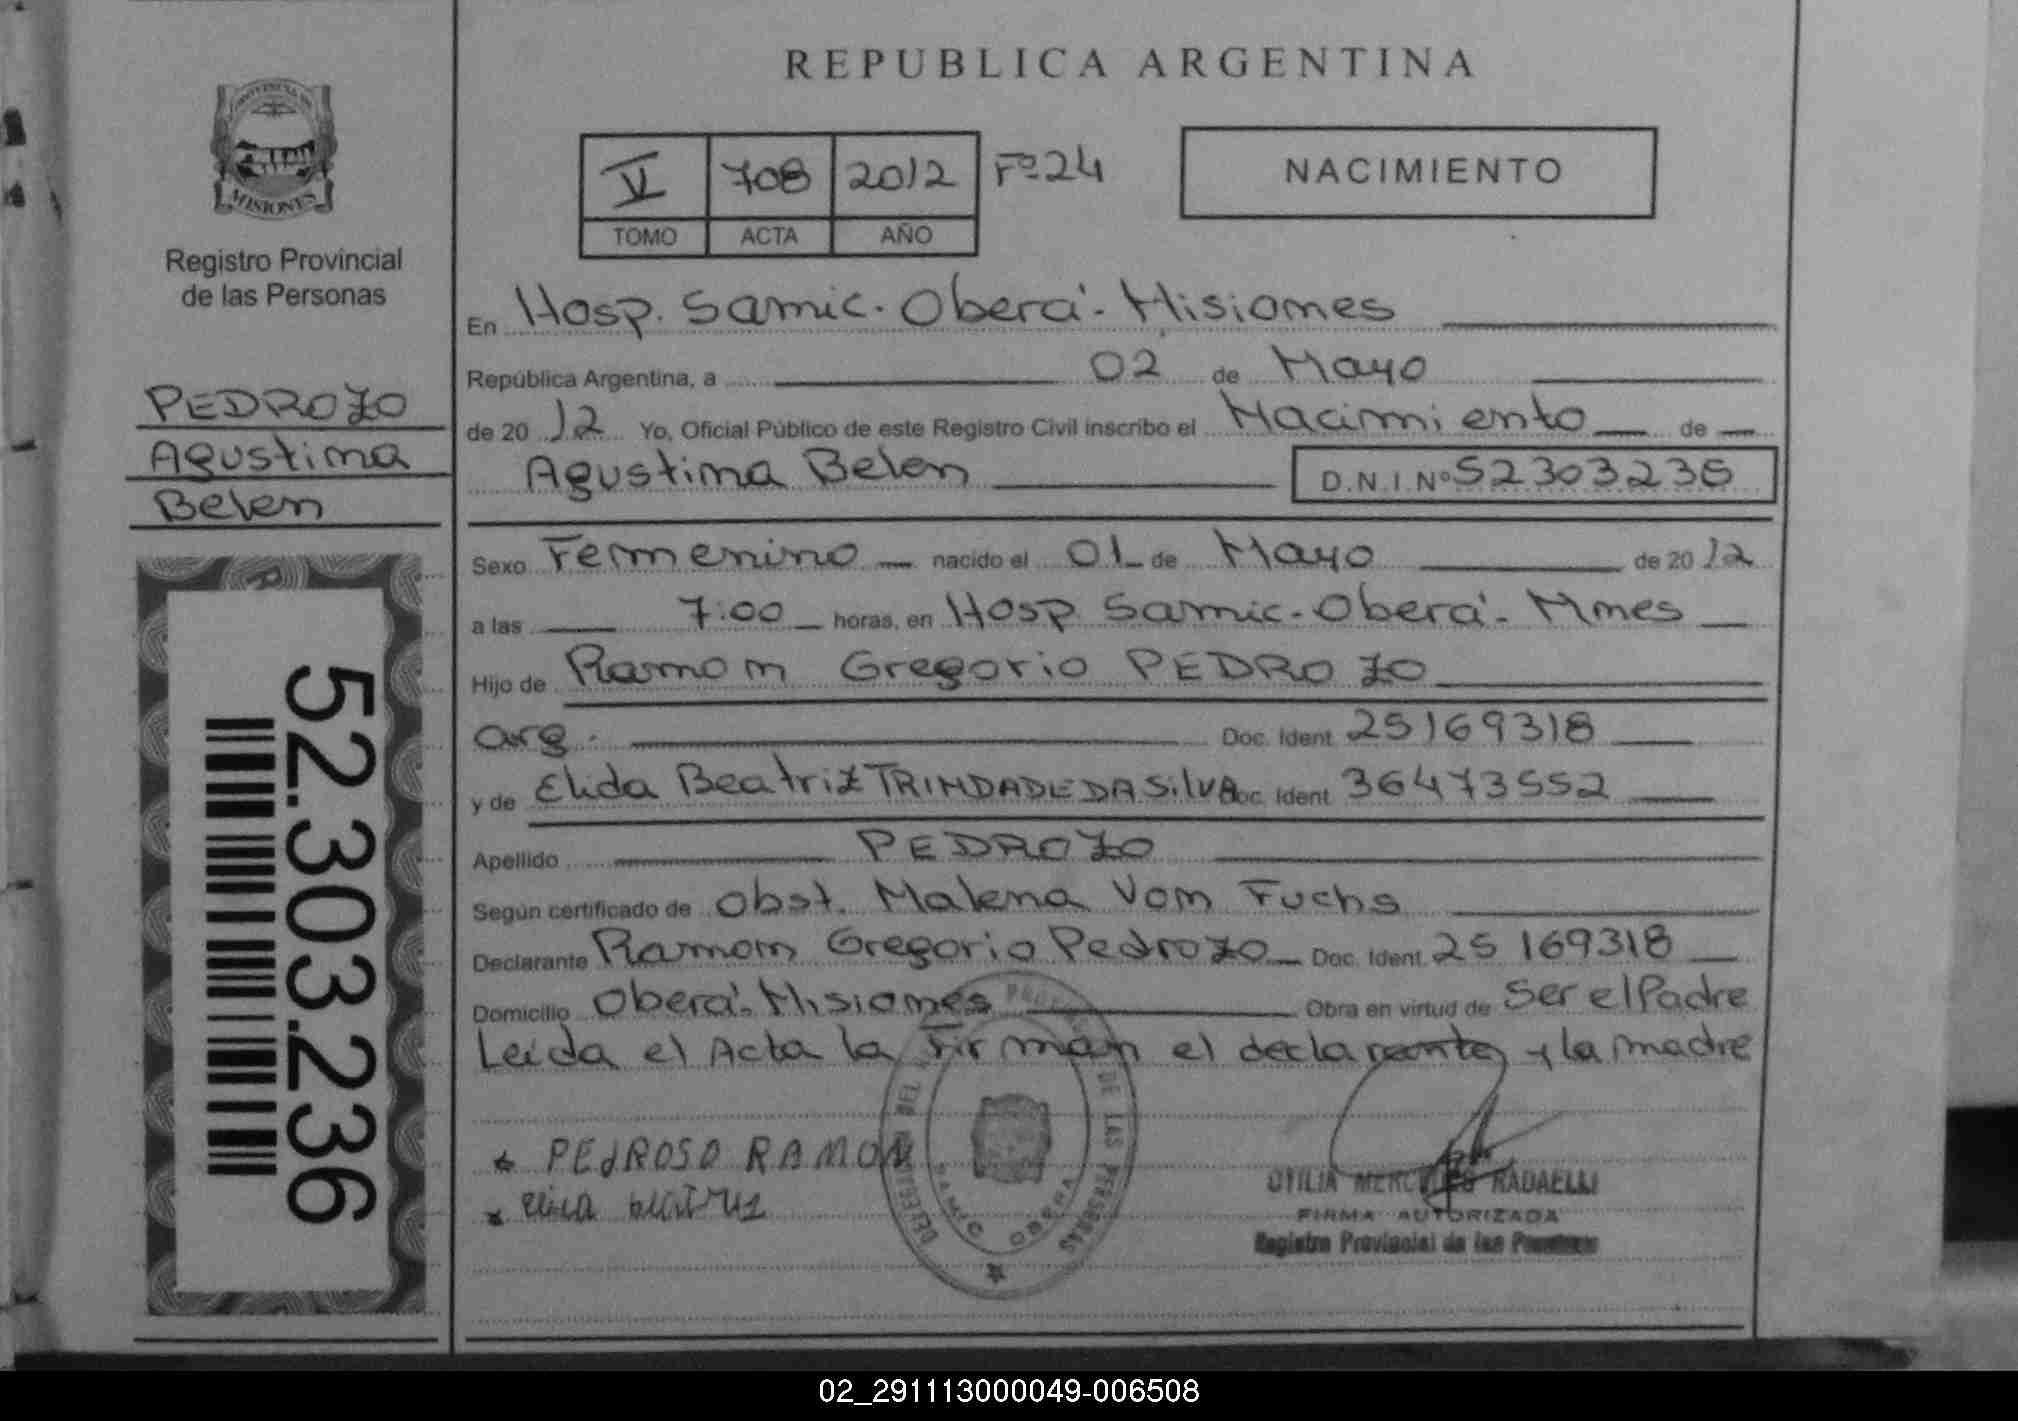 REPUBLICA ARGENTINA
PROVINCIA DE
MISIONES
Registro Provincial
de las Personas
V 708 2012 Fº 24
TOMO ACTA AÑO
NACIMIENTO
PEDROZO
Agustina
Belen
52.303.236
En Hosp. Samic. Oberá. Misiones
República Argentina, a 02 de Mayo
de 20 12 Yo, Oficial Público de este Registro Civil inscribo el Nacimiento de
Agustina Belen D.N.I. Nº 52303236
Sexo Femenino nacido el 01 de Mayo de 20 12
a las 7:00 horas, en Hosp. Samic - Oberá. Mnes
Hijo de Ramon Gregorio PEDROZO
arg. Doc. Ident 25169318
y de Elida Beatriz TRINDADE DA SilVA Doc. Ident 36473552
Apellido PEDROZO
Según certificado de Obst. Malena Von Fuchs
Declarante Ramon Gregorio Pedrozo Doc. Ident. 25 169318
Domicilio Oberá. Misiones Obra en virtud de Ser el Padre
Leida el Acta la Firman el declarante y la madre
PEdROSO RAMON
DE LAS PERSONAS
SAMIC OBERA
OTILIA MERCEDES RADAELLI
FIRMA AUTORIZADA
Registro Provincial de las Personas
02_291113000049-006508